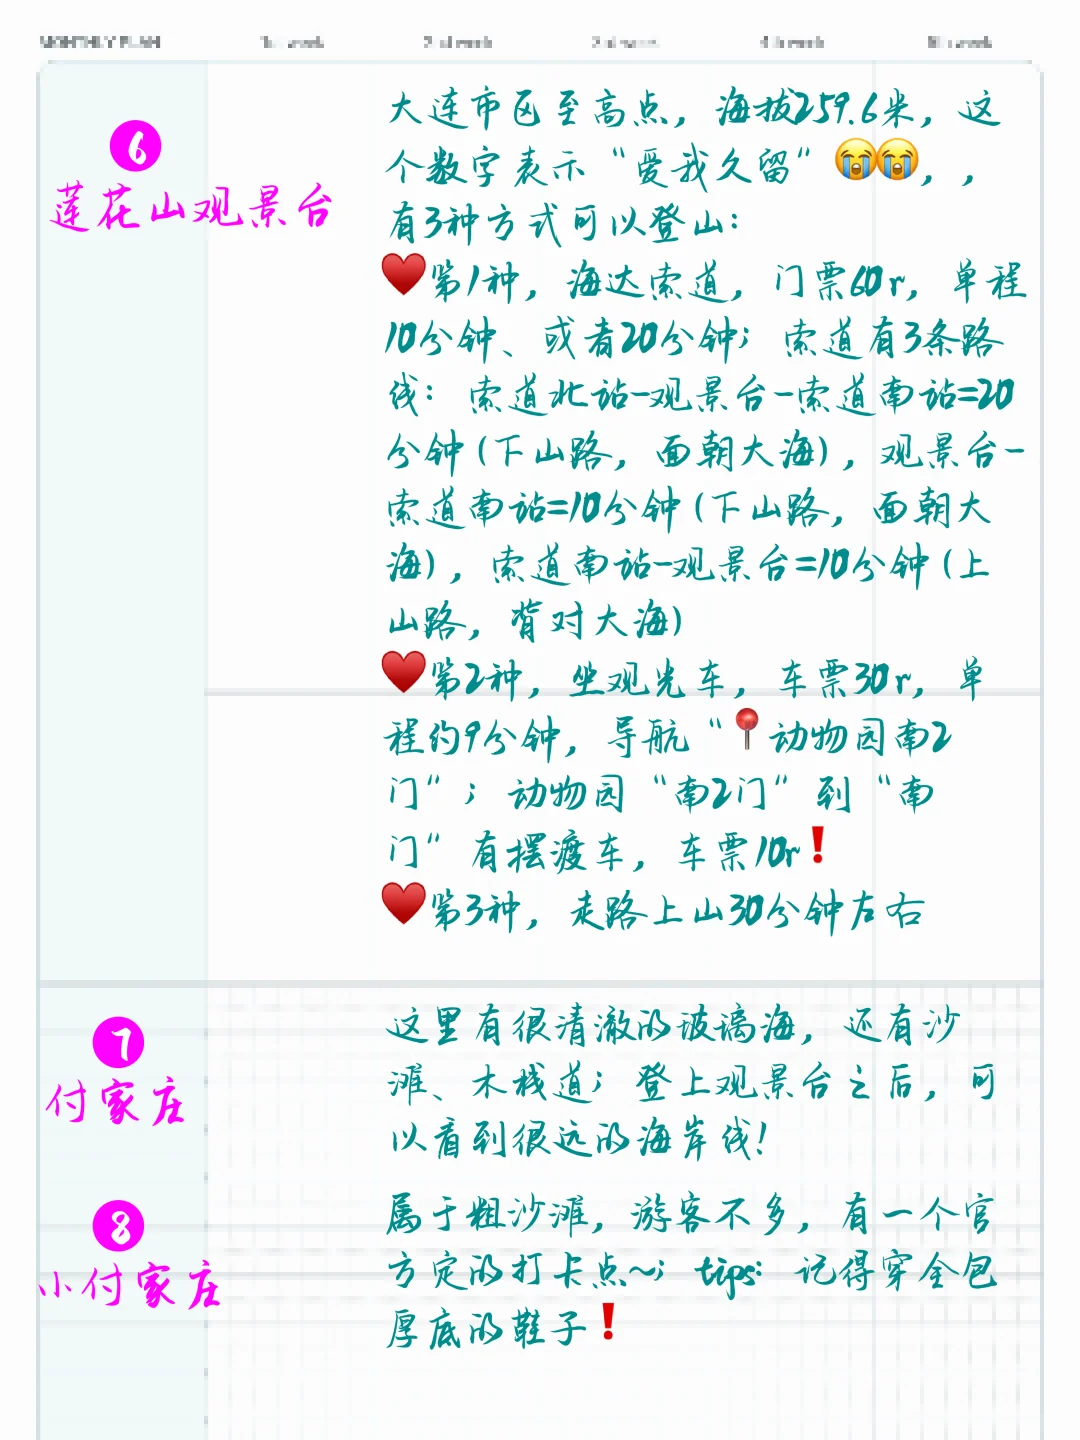 MONTHLY PLAN
大连市区至高点，海拔259.6米，这
个数字表示“爱我久留”😭😭，，
有3种方式可以登山：
6
莲花山观景台
♥️第1种，海达索道，门票60r，单程
10分钟、或者20分钟；索道有3条路
线：索道北站-观景台-索道南站=20
分钟(下山路，面朝大海)，观景台-
索道南站=10分钟(下山路，面朝大
海)，索道南站-观景台=10分钟(上
山路，背对大海)
♥️第2种，坐观光车，车票30r，单
程约9分钟，导航“📍动物园南2
门”；动物园“南2门”到“南
门”有摆渡车，车票10r❗
♥️第3种，走路上山30分钟左右
7
付家庄
这里有很清澈的玻璃海，还有沙
滩、木栈道；登上观景台之后，可
以看到很远的海岸线！
8
小付家庄
属于粗沙滩，游客不多，有一个官
方定的打卡点~；tips：记得穿全包
厚底的鞋子❗